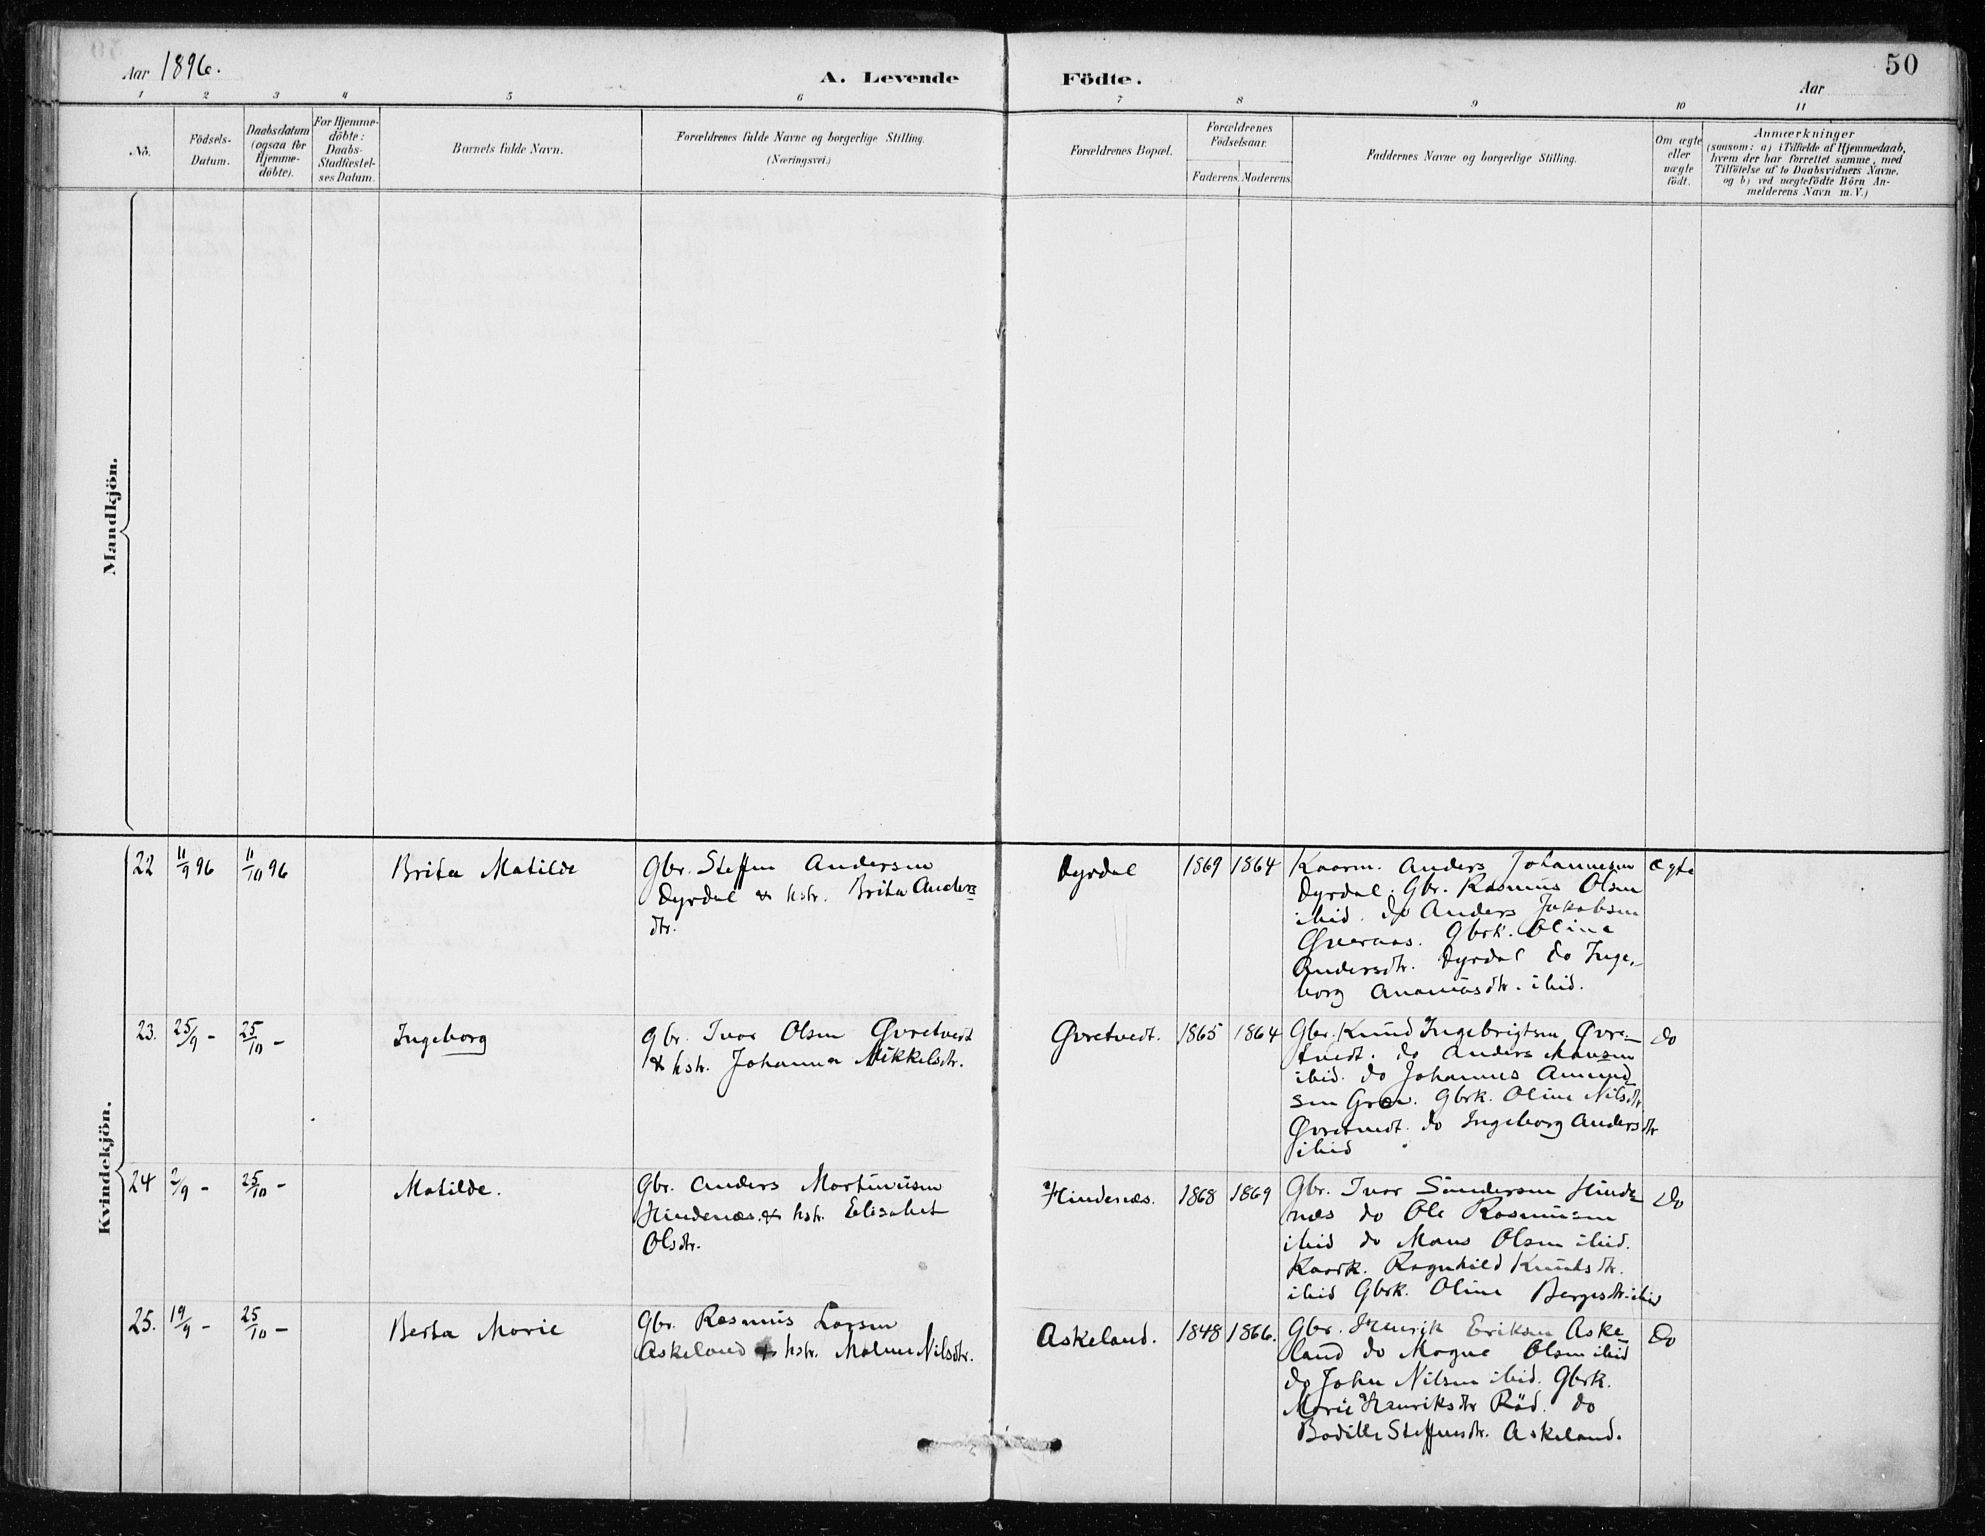 Aar 1896.
A. Levende Födte.
50
Aar
1 2 3 4 5 6 7 8 9 10 11
No.
Födsels-
Datum.
Daabsdatum
(ogsaa for
Hjemme-
döbte).
For Hjemme-
döbte:
Daabs-
Stadfæstel-
ses Datum.
Barnets fulde Navn.
Forældrenes fulde Navne og borgerlige Stilling.
(Næringsvei.)
Forældrenes Bopæl.
Forældrenes
Födselsaar.
Faderens. Moderens.
Faddernes Navne og borgerlige Stilling.
Om ægte
eller
uægte
født.
Anmærkninger
(saasom: a) i Tilfælde af Hjemmedaab,
hvem der har forrettet samme, med
Tilföielse af to Daabsvidners Navne.
og b) ved uægtefödte Börn An-
melderens Navn m. V.)
Mandkjön.
Kvindekjön.
22
11/9 96
11/10 96
Brita Matilde
Gbr. Steffen Andersen
Dyrdal & hstr. Brita Anders
dtr.
Dyrdal
1869 1864
Kaarm. Anders Johannesen
Dyrdal. Gbr. Rasmus Olsen
ibid. do Anders Jakobsen
Gbrk. Oline
Andersdtr. Dyrdal do Inge-
borg Ananiasdtr. ibid.
ægte
23.
25/9 -
25/10 -
Ingeborg
Gbr. Ivar Olsen Øvretvedt
& hstr. Johanna Mikkelsdtr.
Øvretvedt.
1865 1864
Gbr. Knud Ingebrigtsen Øvre-
tvedt. do Anders Monsen
ibid. do Johannes Amund-
sen Grov. Gbrk. Oline Nilsdtr
Øvretvedt. do Ingeborg Andersdtr
ibid
do
24
2/9 -
25/10 -
Matilde.
Gbr. Anders Martinusen
Hindenæs. & hstr. Elisabet
Olsdtr.
Hindenæs.
1868 1869
Gbr. Ivar Sandersen Hinde-
næs do Ole Rasmusen
ibid do Mons Olsen ibid.
Kaark. Ragnhild Knudsdtr.
ibid Gbrk. Oline Bergesdtr. ibid
do
25.
19/9 -
25/10 -
Berta Marie
Gbr. Rasmus Larsen
Askeland & hstr. Malene Nilsdtr.
Askeland.
1848 1866.
Gbr. Henrik Eriksen Aske-
land do Mogne Olsen ibid
do John Nilsen ibid. Gbrk.
Marie Henriksdtr Röd. do
Bodille Steffensdtr. Askeland.
do